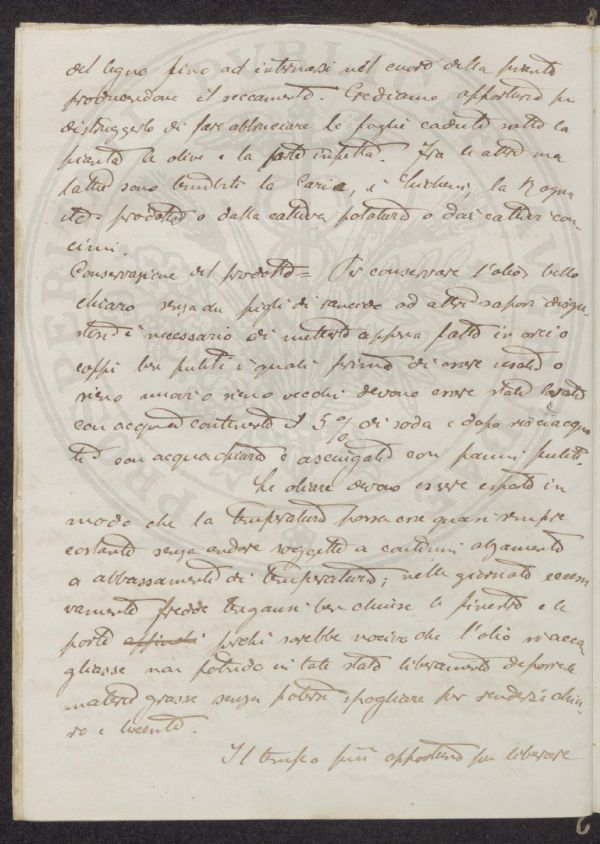 del legno fino ad internarsi nel cuore della pianta
producendone il seccamento. Crediamo opportuno per
distruggerlo di fare abbruciare le foglie cadute sotto la
pianta le olive e la parte infetta. Fra le altre ma
lattie sono temibili la Carie, i Licheni, la Rogna
prodotte o dalla cattiva potatura o dai cattivi con-
cimi.
Conservazione del prodotto = Per conservare l'olio bello
chiaro senza che pigli di rancido od altri sapori disgu-
stosi è necessario di metterlo appena fatto in orci o
coppi ben puliti i quali prima di essere usati o
sieno nuovi o sieno vecchi devono essere stati lavati
con acqua contenente il 5 % di soda e dopo risciacqua
ti con acqua chiara e asciugati con panni puliti.
Le oliare devono essere esposte in
modo che la temperatura possa esse quasi sempre
costante senza andare soggetta a continui alzamenti
o abbassamenti di temperatura; nelle giornate eccessi
vamente fredde tengansi ben chiuse le finestre e le
porte affinchè perchè sarebbe nocivo che l'olio si acca
gliasse non potendo in tale stato liberamente deporre le
materie grasse senza potersi spogliare per rendersi chia-
ro e lucente.
Il tempo più opportuno per liberare
6